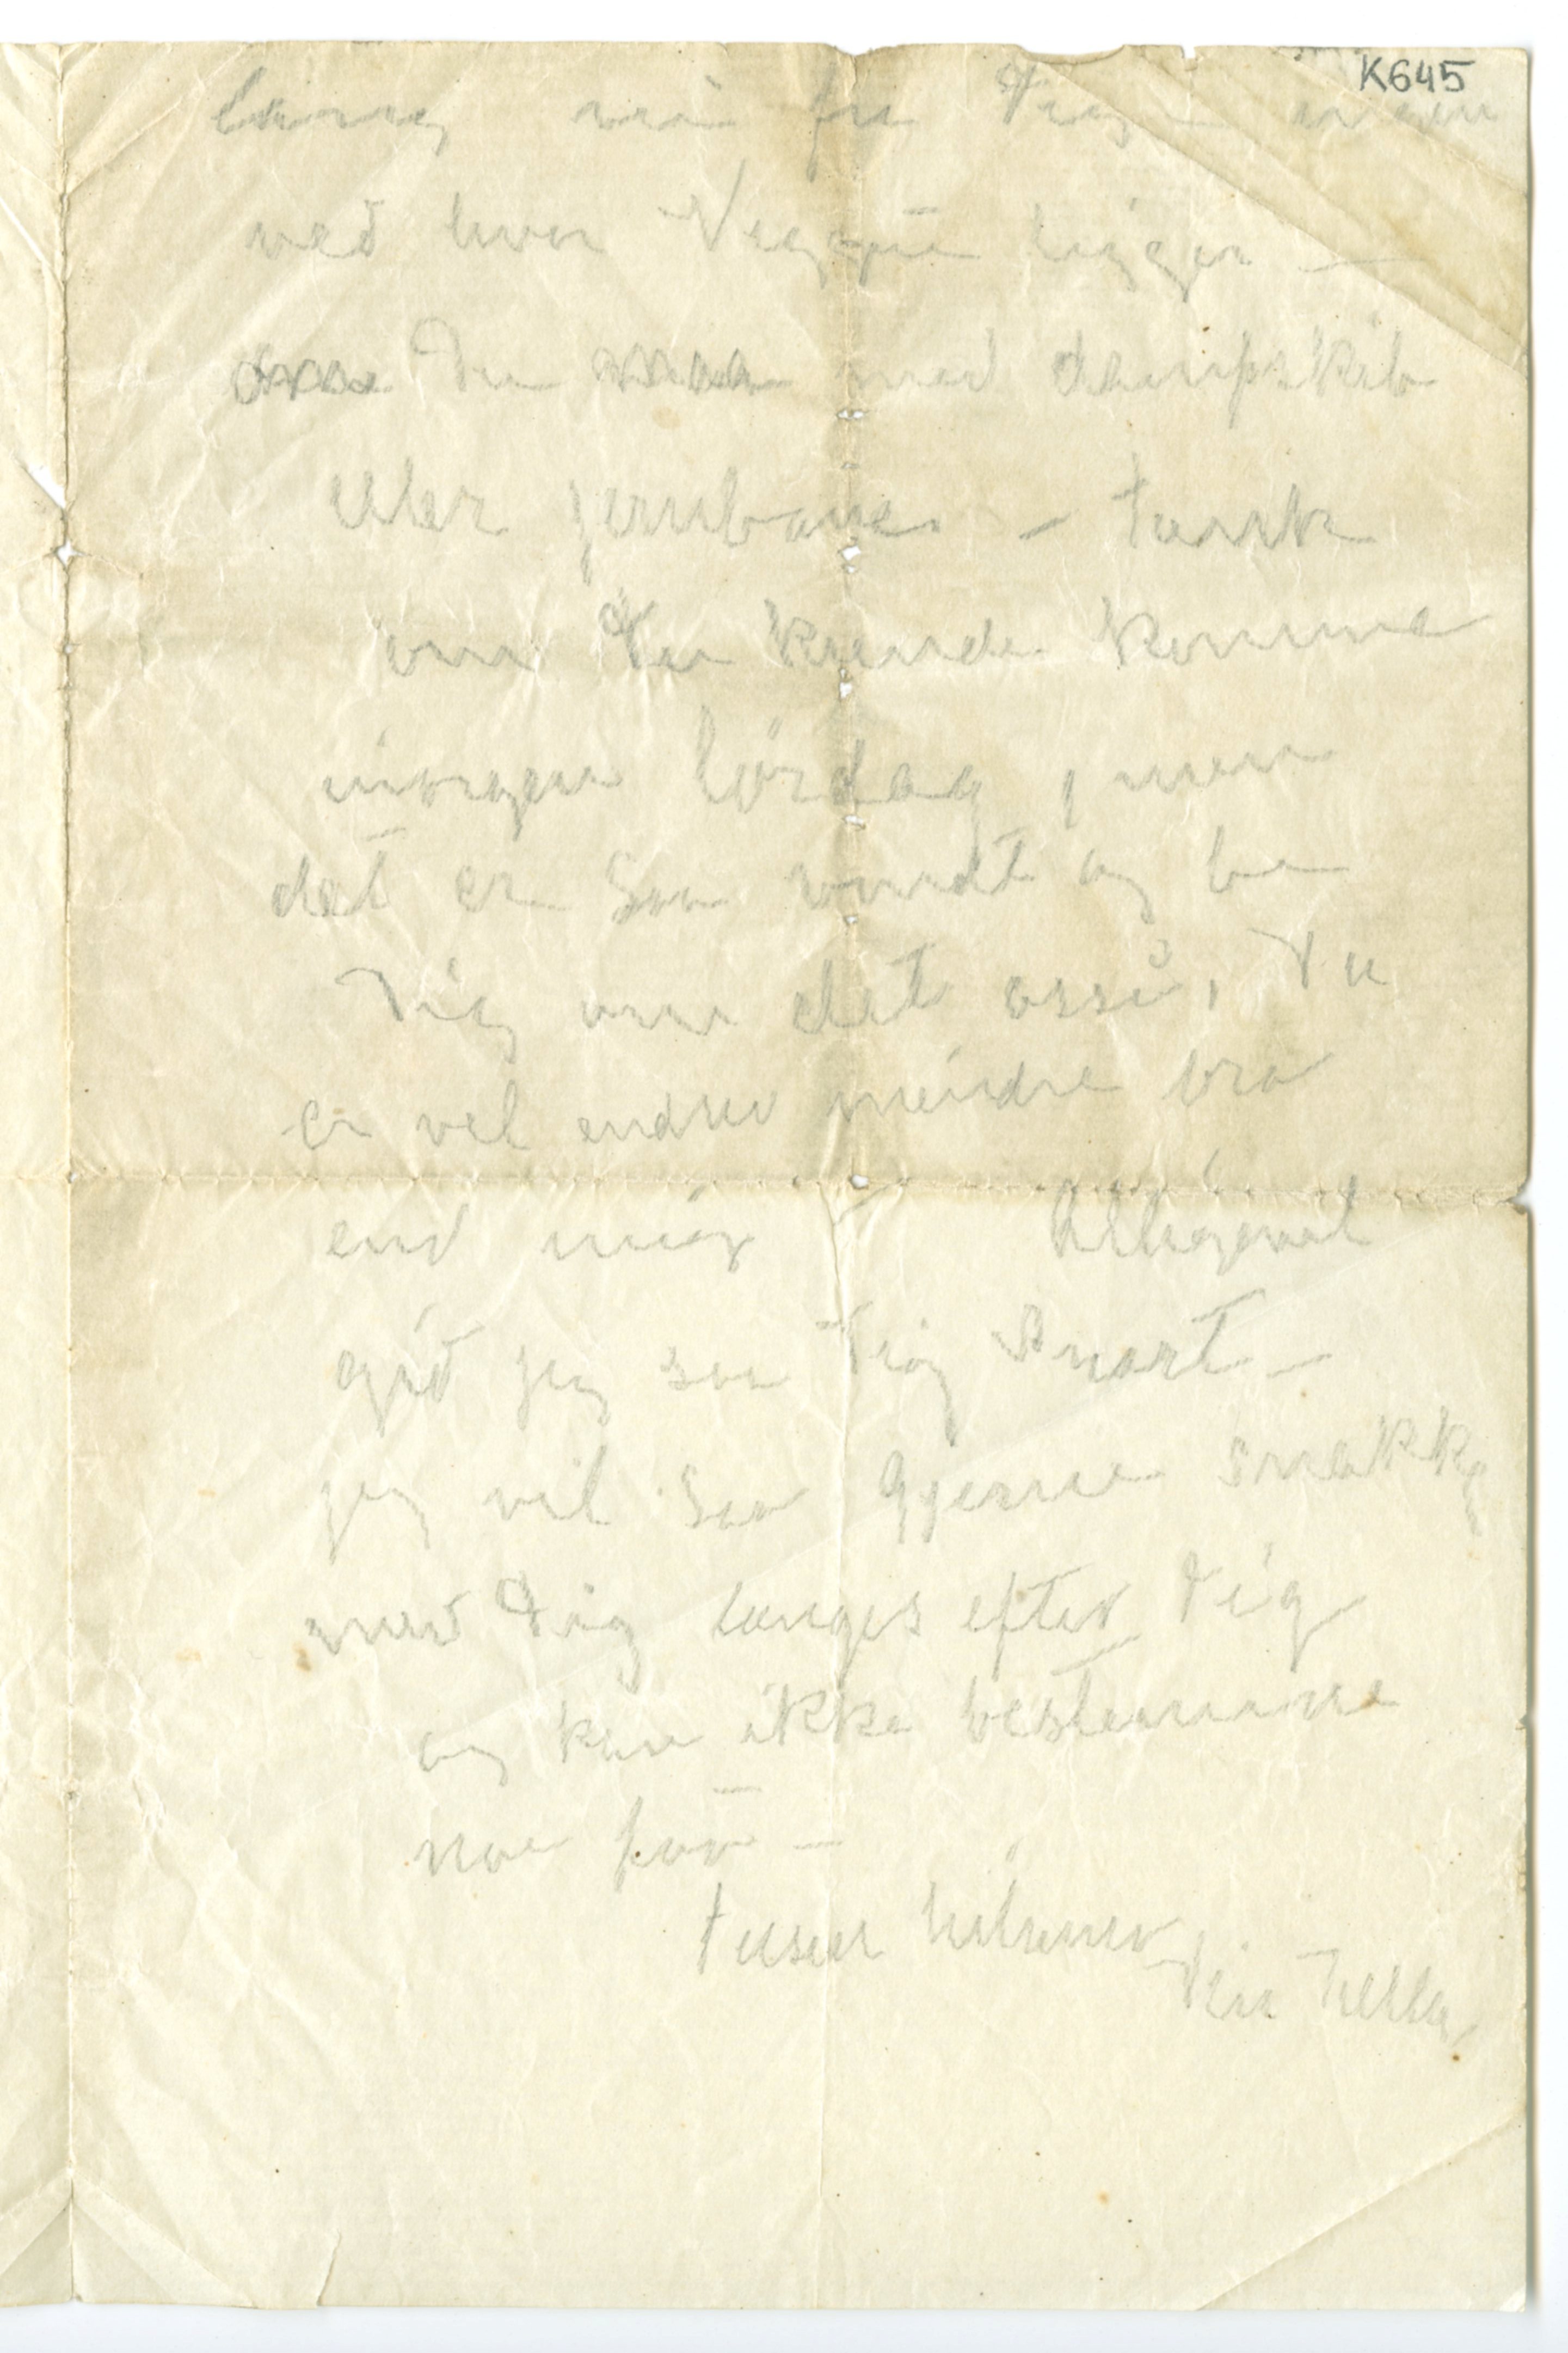 K645
fra
ved hvor ligger —
Du med dampskib
eller jernbane. – tænk
om Du kunde komme
imorgen lørdag, men
det er saa vondt og be
Dig om det osså, Du
er vel endnu mindre bra
end mig Alligevel
gid jeg saa Dig snart —
jeg vil saa gjerne snakke
med Dig længes efter Dig
og kan ikke bestemme
noe før —
tusen hilsener
Din Tulla,